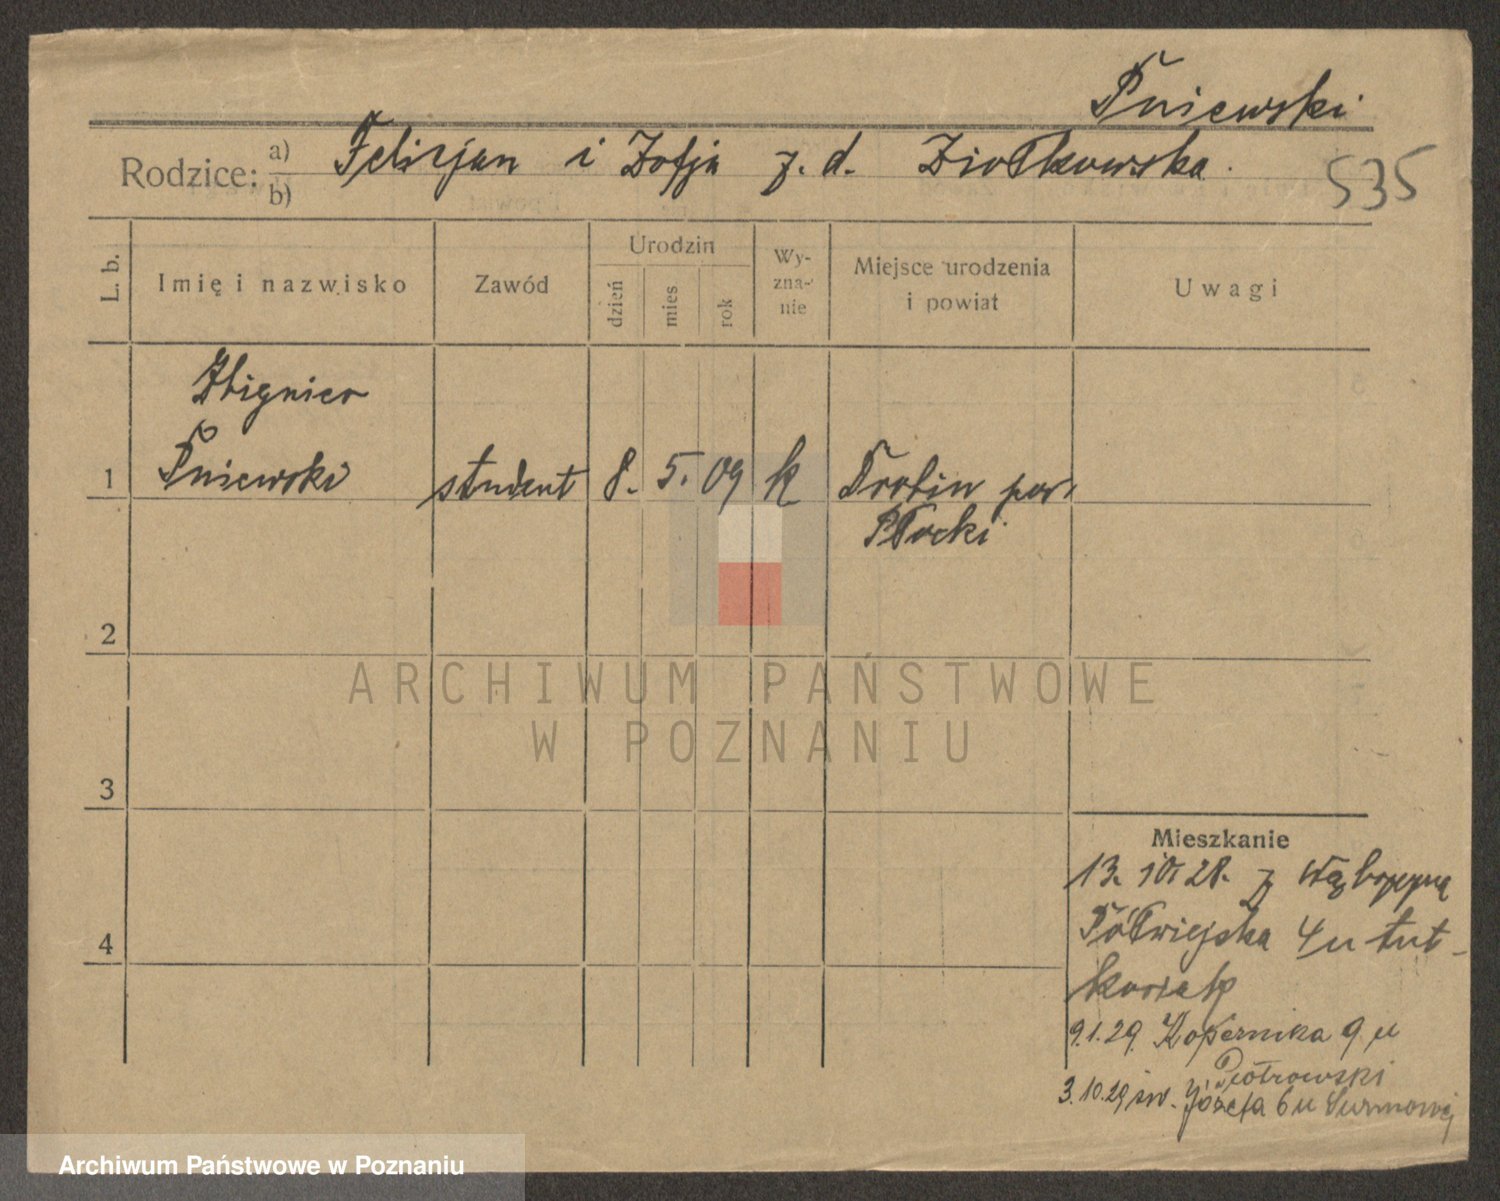 Pniewski
Rodzice: a) b) Felicjan i Zofja z. d. Ziołkowska.
535
L. b.
Imię i nazwisko
Zawód
Urodzin
dzień
mies
rok
Wy-
zna-
nie
Miejsce urodzenia
i powiat
Uwagi
Zbigniew
1 Pniewski student 8. 5. 09 k Drobin pow.
Płocki
2
3
4
ARCHIWUM PAŃSTWOWE
W POZNANIU
Mieszkanie
13. 10. 28. z Wąbrzeźna
Półwiejska 4 u
9.1.29. Kopernika 9 u
Piotrowski
3.10.29 św. Józefa 6 u Surmowej
Archiwum Państwowe w Poznaniu